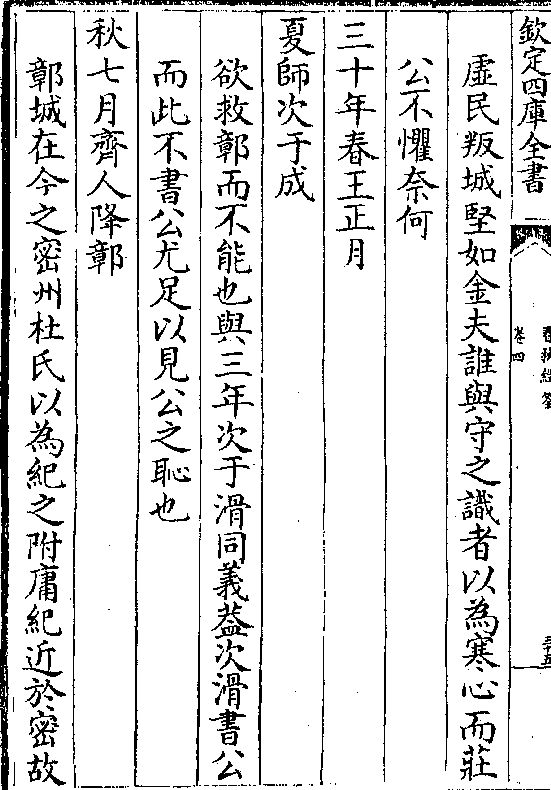 欽定四庫全書
卷四
虛民叛城堅如金夫誰與守之識者以為寒心而莊
公不懼奈何
三十年春王正月
夏師次于成
欲救鄣而不能也與三年次于滑同義葢次滑書公
而此不書公尤足以見公之恥也
秋七月齊人降鄣
鄣城在今之密州杜氏以為紀之附庸紀近於密故